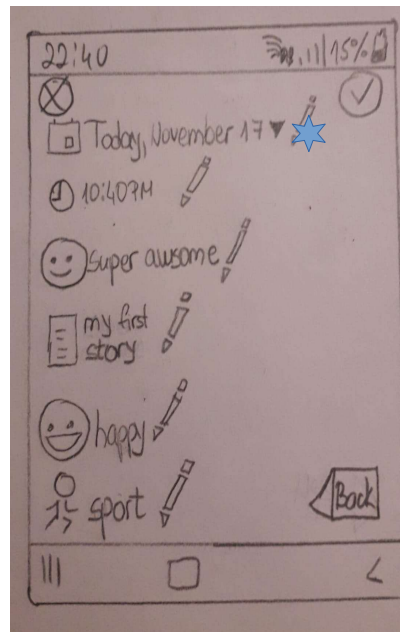 22:40 15%
Today, November 17
10:40PM
Super awsome
my first
story
happy
sport
Back